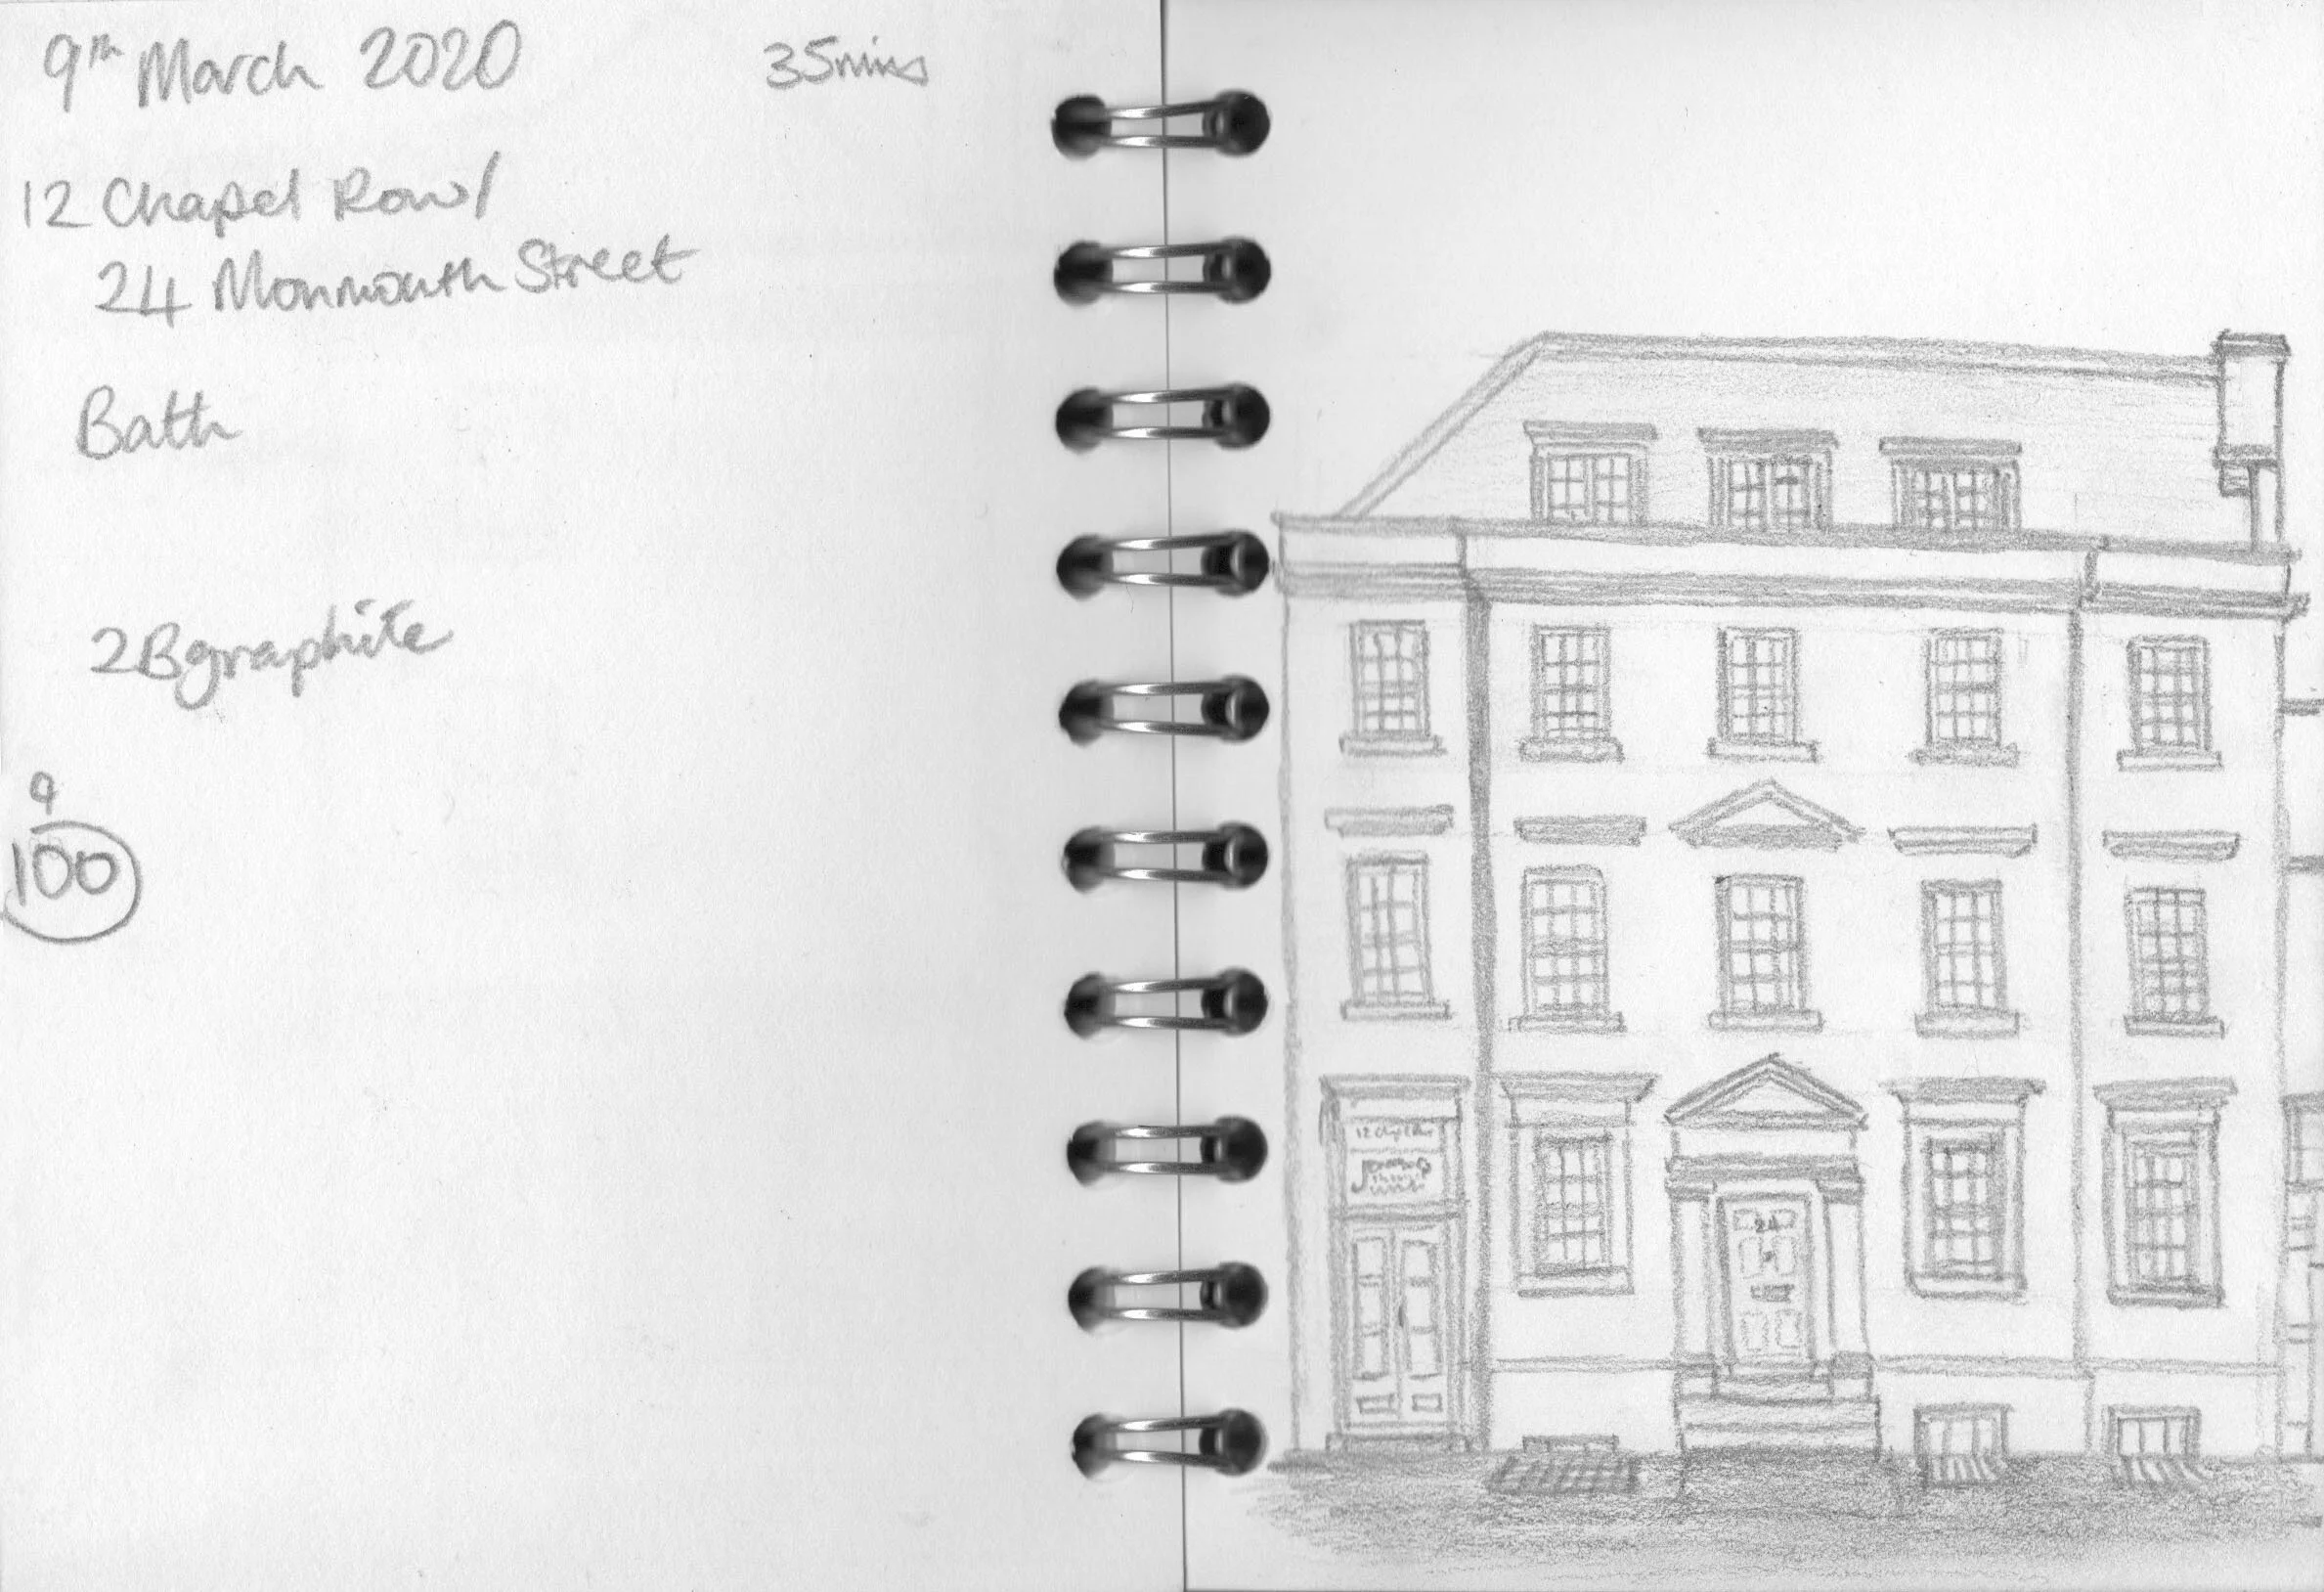 9th March 2020 35mins
12 Chapel Row/
24 Monmouth Street
Bath
2B graphite
9
100
24